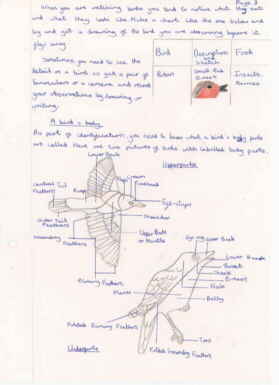 Page 3
When you are watching birds you need to notice what they eat
and what they look like. Make a chart like the one below and
try and get a drawing of the bird you are observing before it
flys away.
Sometimes you need to see the
detail on a bird so get a pair of
binoculars or a camera and record
your observations by drawing or
writing.
Bird
Description and Sketch
Food
Robin
Small Red Breast
Insects
Berries
A bird's body
As part of identification, you need to know what a bird's body parts
are called. Here are two pictures of birds with labelled body parts.
Lower Back
Upperparts
Crown
Central Tail Feathers
Rump
Forehead
Eye-stripe
Outer Tail Feathers
Shoulder
Secondary Feathers
Upper Back or Mantle
Primary Feathers
Eye ring
Upper Beak
Lower Beak
Throat
Cheek
Breast
Flank
Belly
Folded Primary Feathers
Toes
Underparts
Folded Secondary Feathers